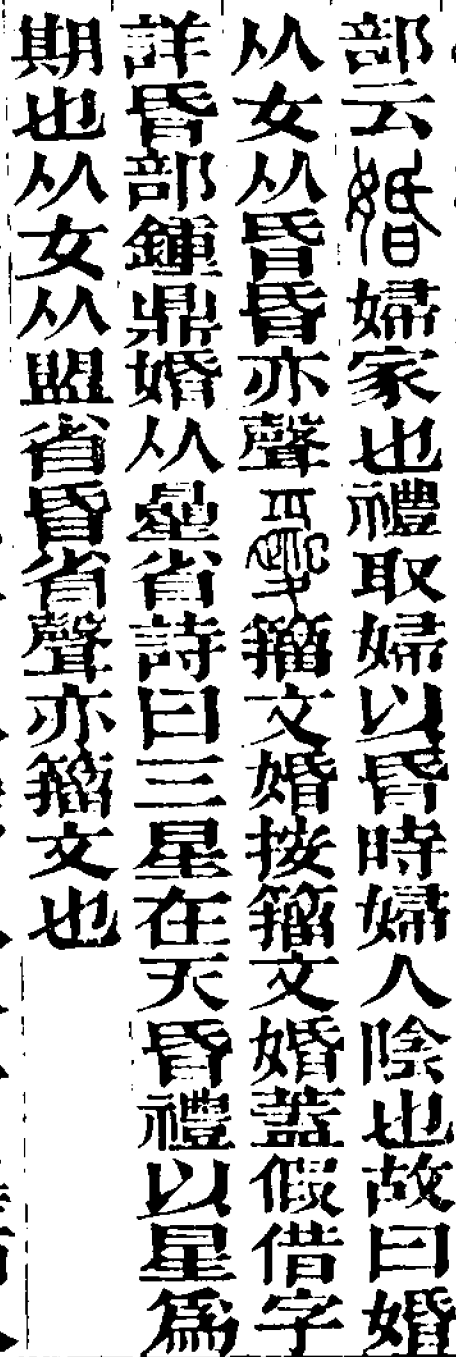 部云婚婦家也禮取婦以昏時婦人陰也故曰婚
从女从昏昏亦聲籀文婚按籀文婚蓋假借字
詳昏部鍾鼎婚从曐省詩曰三星在天昏禮以星爲
期也从女从盟省昏省聲亦籀文也